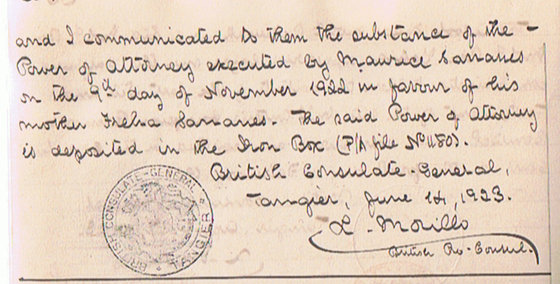 and I communicated to them the substance of the -
Power of Attorney executed by Maurice Sananes
on the 9th day of November 1922 in favour of his
mother Freha Sananes. The said Power of Attorney
is deposited in the Iron Box (P/A file No 1180).
British Consulate-General,
Tangier, June 14, 1923.
L. Morillo
British Pro-Consul.
BRITISH CONSULATE-GENERAL
TANGIER